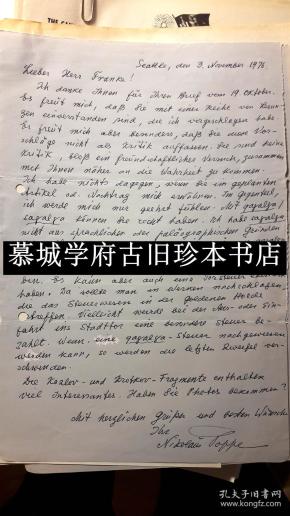 THE CA
Seattle, den 3. November 1975.
Lieber Herr Franke!
Ich danke Ihnen für Ihren Brief vom 19. Oktober.
Es freut mich, daß Sie mit einer Reihe von
einverstanden sind, die ich vorgeschlagen habe.
Es freut mich aber besonders, daß Sie meine Vor-
schläge nicht als Kritik auffassen. Sie sind keine
Kritik, bloß ein freundschaftlicher Versuch, zusammen
mit Ihnen näher an die Wahrheit zu kommen.
Ich habe nichts dagegen, wenn Sie im
Artikel Nachtrag mich erwähnen. Im Gegenteil,
ich werde mich geehrt fühlen. Mit
können Sie recht haben. Ich habe
nicht aus sprachlichen paläographischen Gründen
慕城学府古旧珍本书店
ben. Es kann aber auch eine
haben. So sollte man in nachschlagen,
die das Steuerwesen in der Goldenen Horde
betreffen. Vielleicht wurde bei der Aus- oder Ein-
fahrt ins Stadttor eine besondere Steuer be-
zahlt. Wenn eine -Steuer nachgewiesen
werden kann, so werden die letzten Zweifel ver-
schwinden.
Die Kozlov- und Fragmente enthalten
viel Interessantes. Haben Sie Photos bekommen?
Mit herzlichen Grüßen und besten Wünschen
Ihr
Nikolaus Poppe
孔夫子旧书网